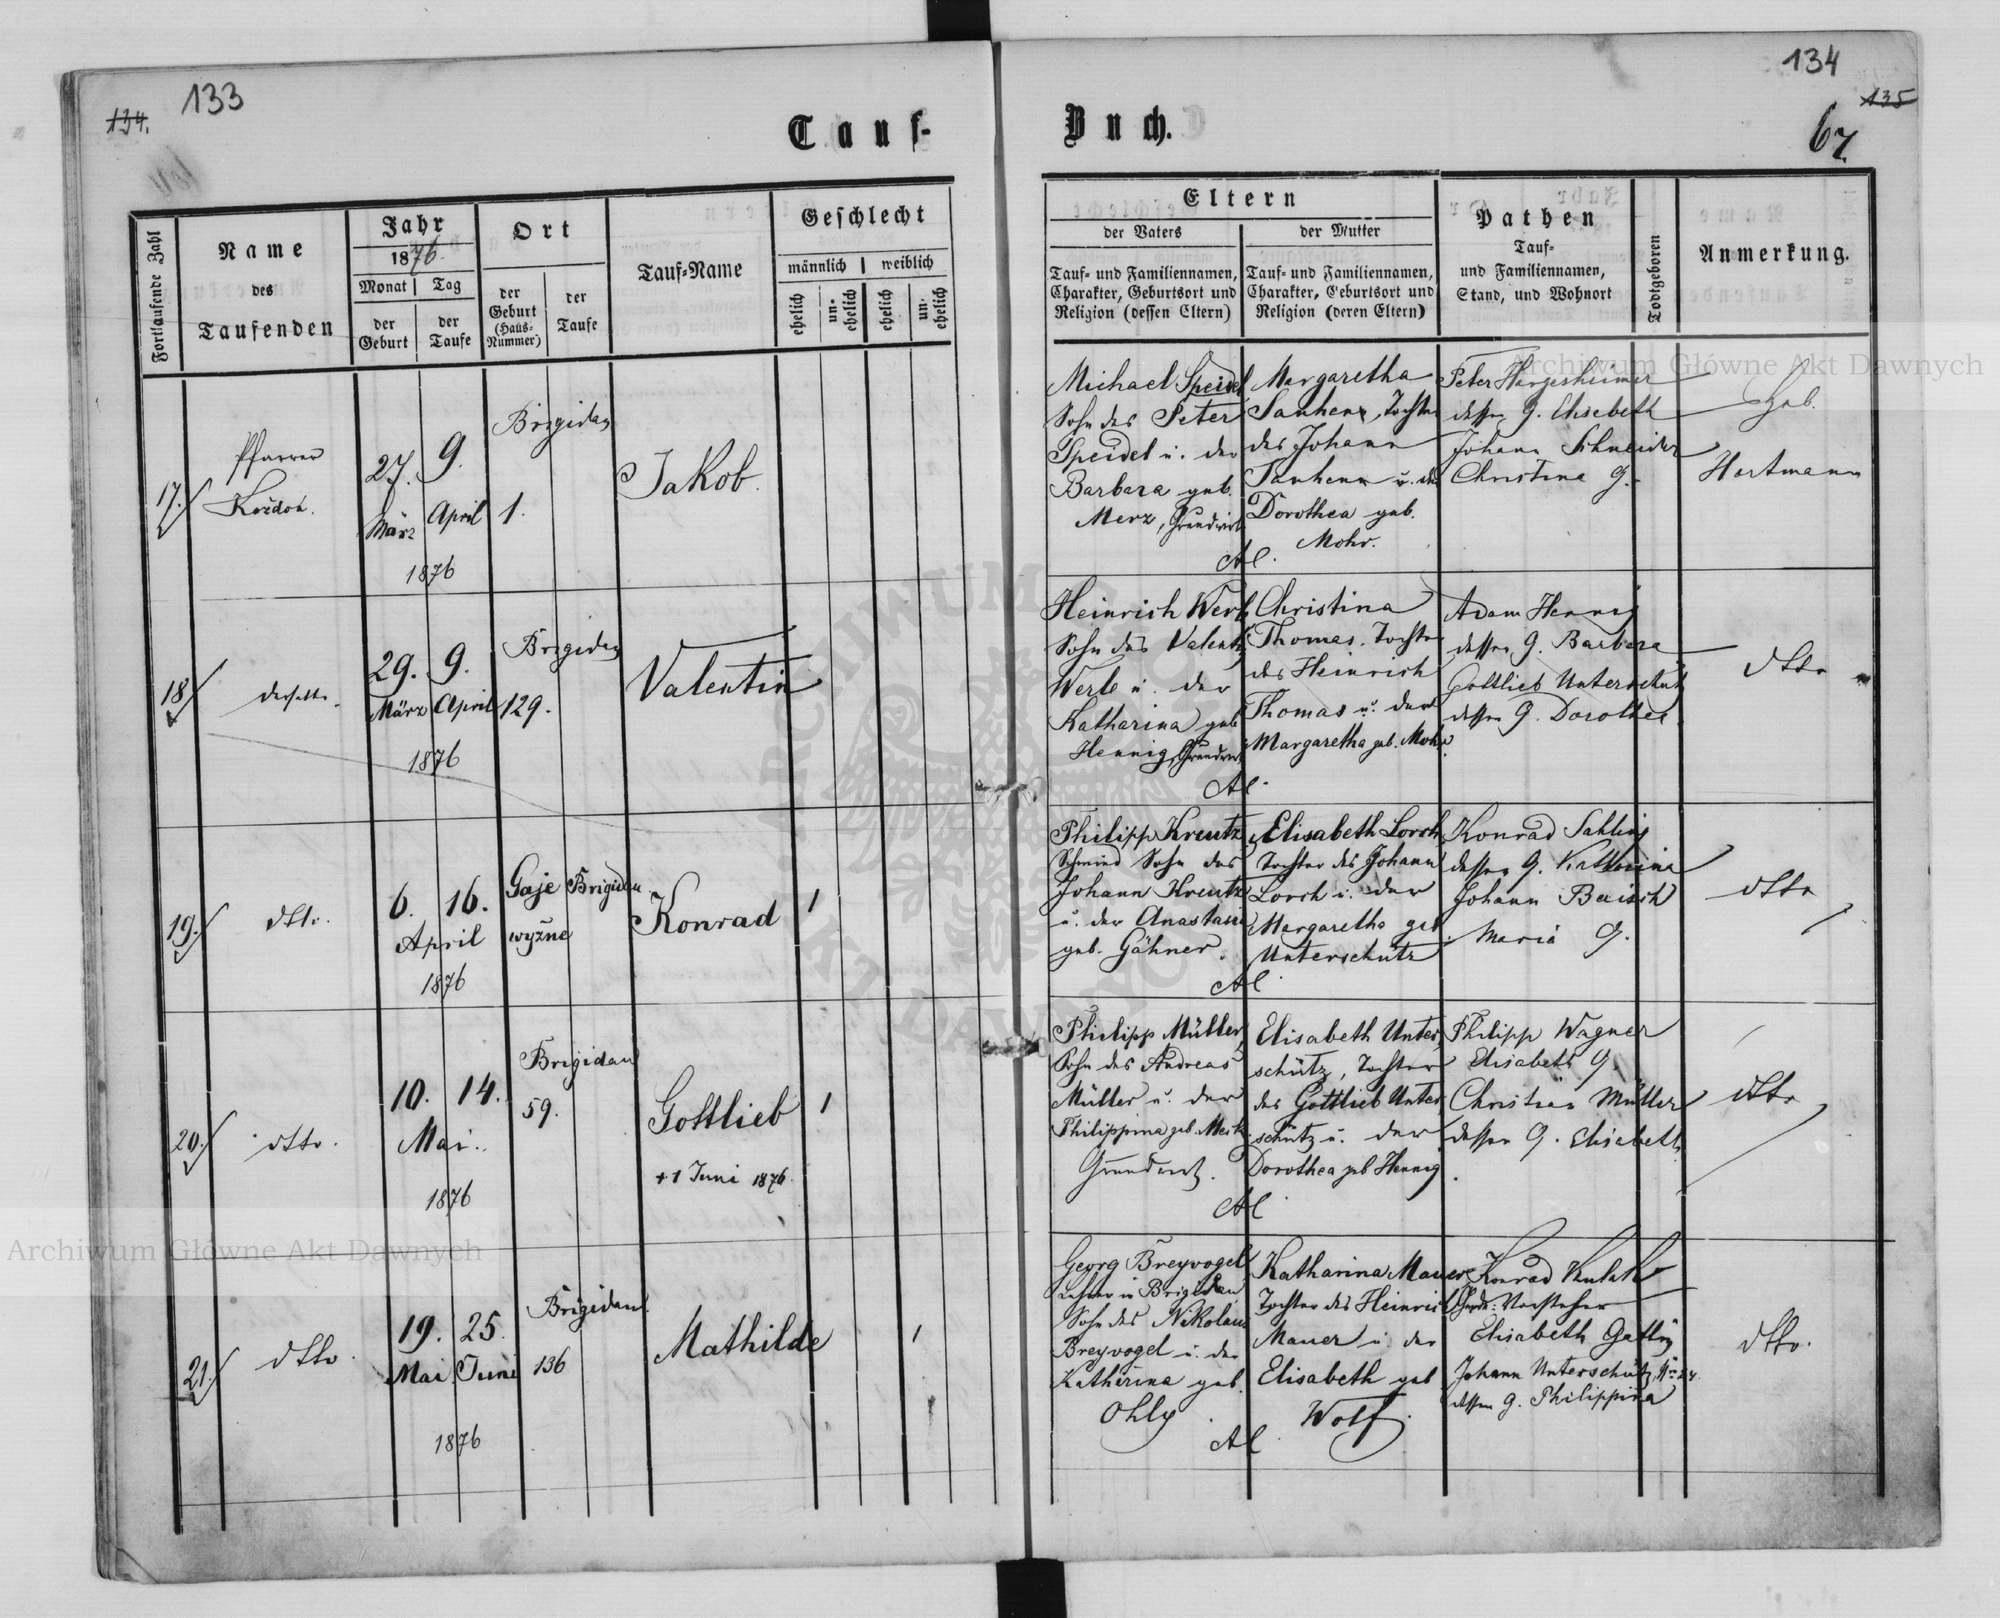 133
134.
134
135
67.
Tauf-
Buch.
Fortlaufende Zahl
Name
des
Taufenden
Jahr
1876.
Monat | Tag
der
Geburt
der
Taufe
Ort
der
Geburt
(Haus-
Nummer)
der
Taufe
Tauf-Name
Geschlecht
männlich | weiblich
ehelich
un-
ehelich
ehelich
un-
ehelich
Eltern
der Vaters
Tauf- und Familiennamen,
Charakter, Geburtsort und
Religion (dessen Eltern)
der Mutter
Tauf- und Familiennamen,
Charakter, Geburtsort und
Religion (deren Eltern)
Pathen
Tauf-
und Familiennamen,
Stand, und Wohnort
Todtgeboren
Anmerkung.
17./
Pfarrer
Koždoń.
27. 9.
März April
1876
Brigidau
1.
Jakob.
Michael Speidel
Sohn des Peter
Speidel u. der
Barbara geb.
Merz, Grundwirt
A C.
Margaretha
Tochter
des Johann
u. der
Dorothea geb.
Mohr.
Peter Hargesheimer
dessen G. Elisabeth
Johann Schneider
Christina G.
Geb.
Hartmann
18/
derselbe.
29. 9.
März April
1876
Brigidau
129.
Valentin
Heinrich Werle
Sohn des Valentin
Werle u. der
Katharina geb
Hennig, Grundwirt
A C.
Christina
Thomas, Tochter
des Heinrich
Thomas u. der
Margaretha geb. Mohr.
Adam Hennig
dessen G. Barbara
Gottlieb Unterschütz
dessen G. Dorothea
dtto
19./
dtto.
6. 16.
April
1876
Gaje Brigidau
wyżne
Konrad
1
Philipp Kreutz
Schmied Sohn des
Johann Kreutz
u. der Anastasia
geb. Gähner.
A C.
Elisabeth Lorch
Tochter des Johann
Lorch u. der
Margaretha geb
Unterschütz
Konrad Sahling
dessen G. Katharina
Johann Baisch
Maria G.
dtto
20./
dtto.
10. 14.
Mai.
1876
Brigidau
59.
Gottlieb
+ 1 Juni 1876.
1
Philipp Müller,
Sohn des Andreas
Müller u. der
Philippina geb.
Grundwirt.
A C.
Elisabeth Unter-
schütz, Tochter
des Gottlieb Unter-
schütz u. der
Dorothea geb Hennig.
Philipp Wagner
Elisabeth G.
Christian Müller
dessen G. Elisabeth.
dtto
21./
dtto.
19. 25.
Mai Juni
1876
Brigidau
136
Mathilde
1
Georg Breyvogel
Lehrer in Brigidau
Sohn des Nikolaus
Breyvogel u. der
Katharina geb.
Ohly.
A C.
Katharina Mauer
Tochter des Heinrich
Mauer u. der
Elisabeth geb
Wolf.
Konrad
Vorsteher
Elisabeth Gattin
Johann Unterschütz,
dessen G. Philippina
dtto.
Archiwum Główne Akt Dawnych
Archiwum Główne Akt Dawnych
ARCHIWUM
AKT DAWNYCH